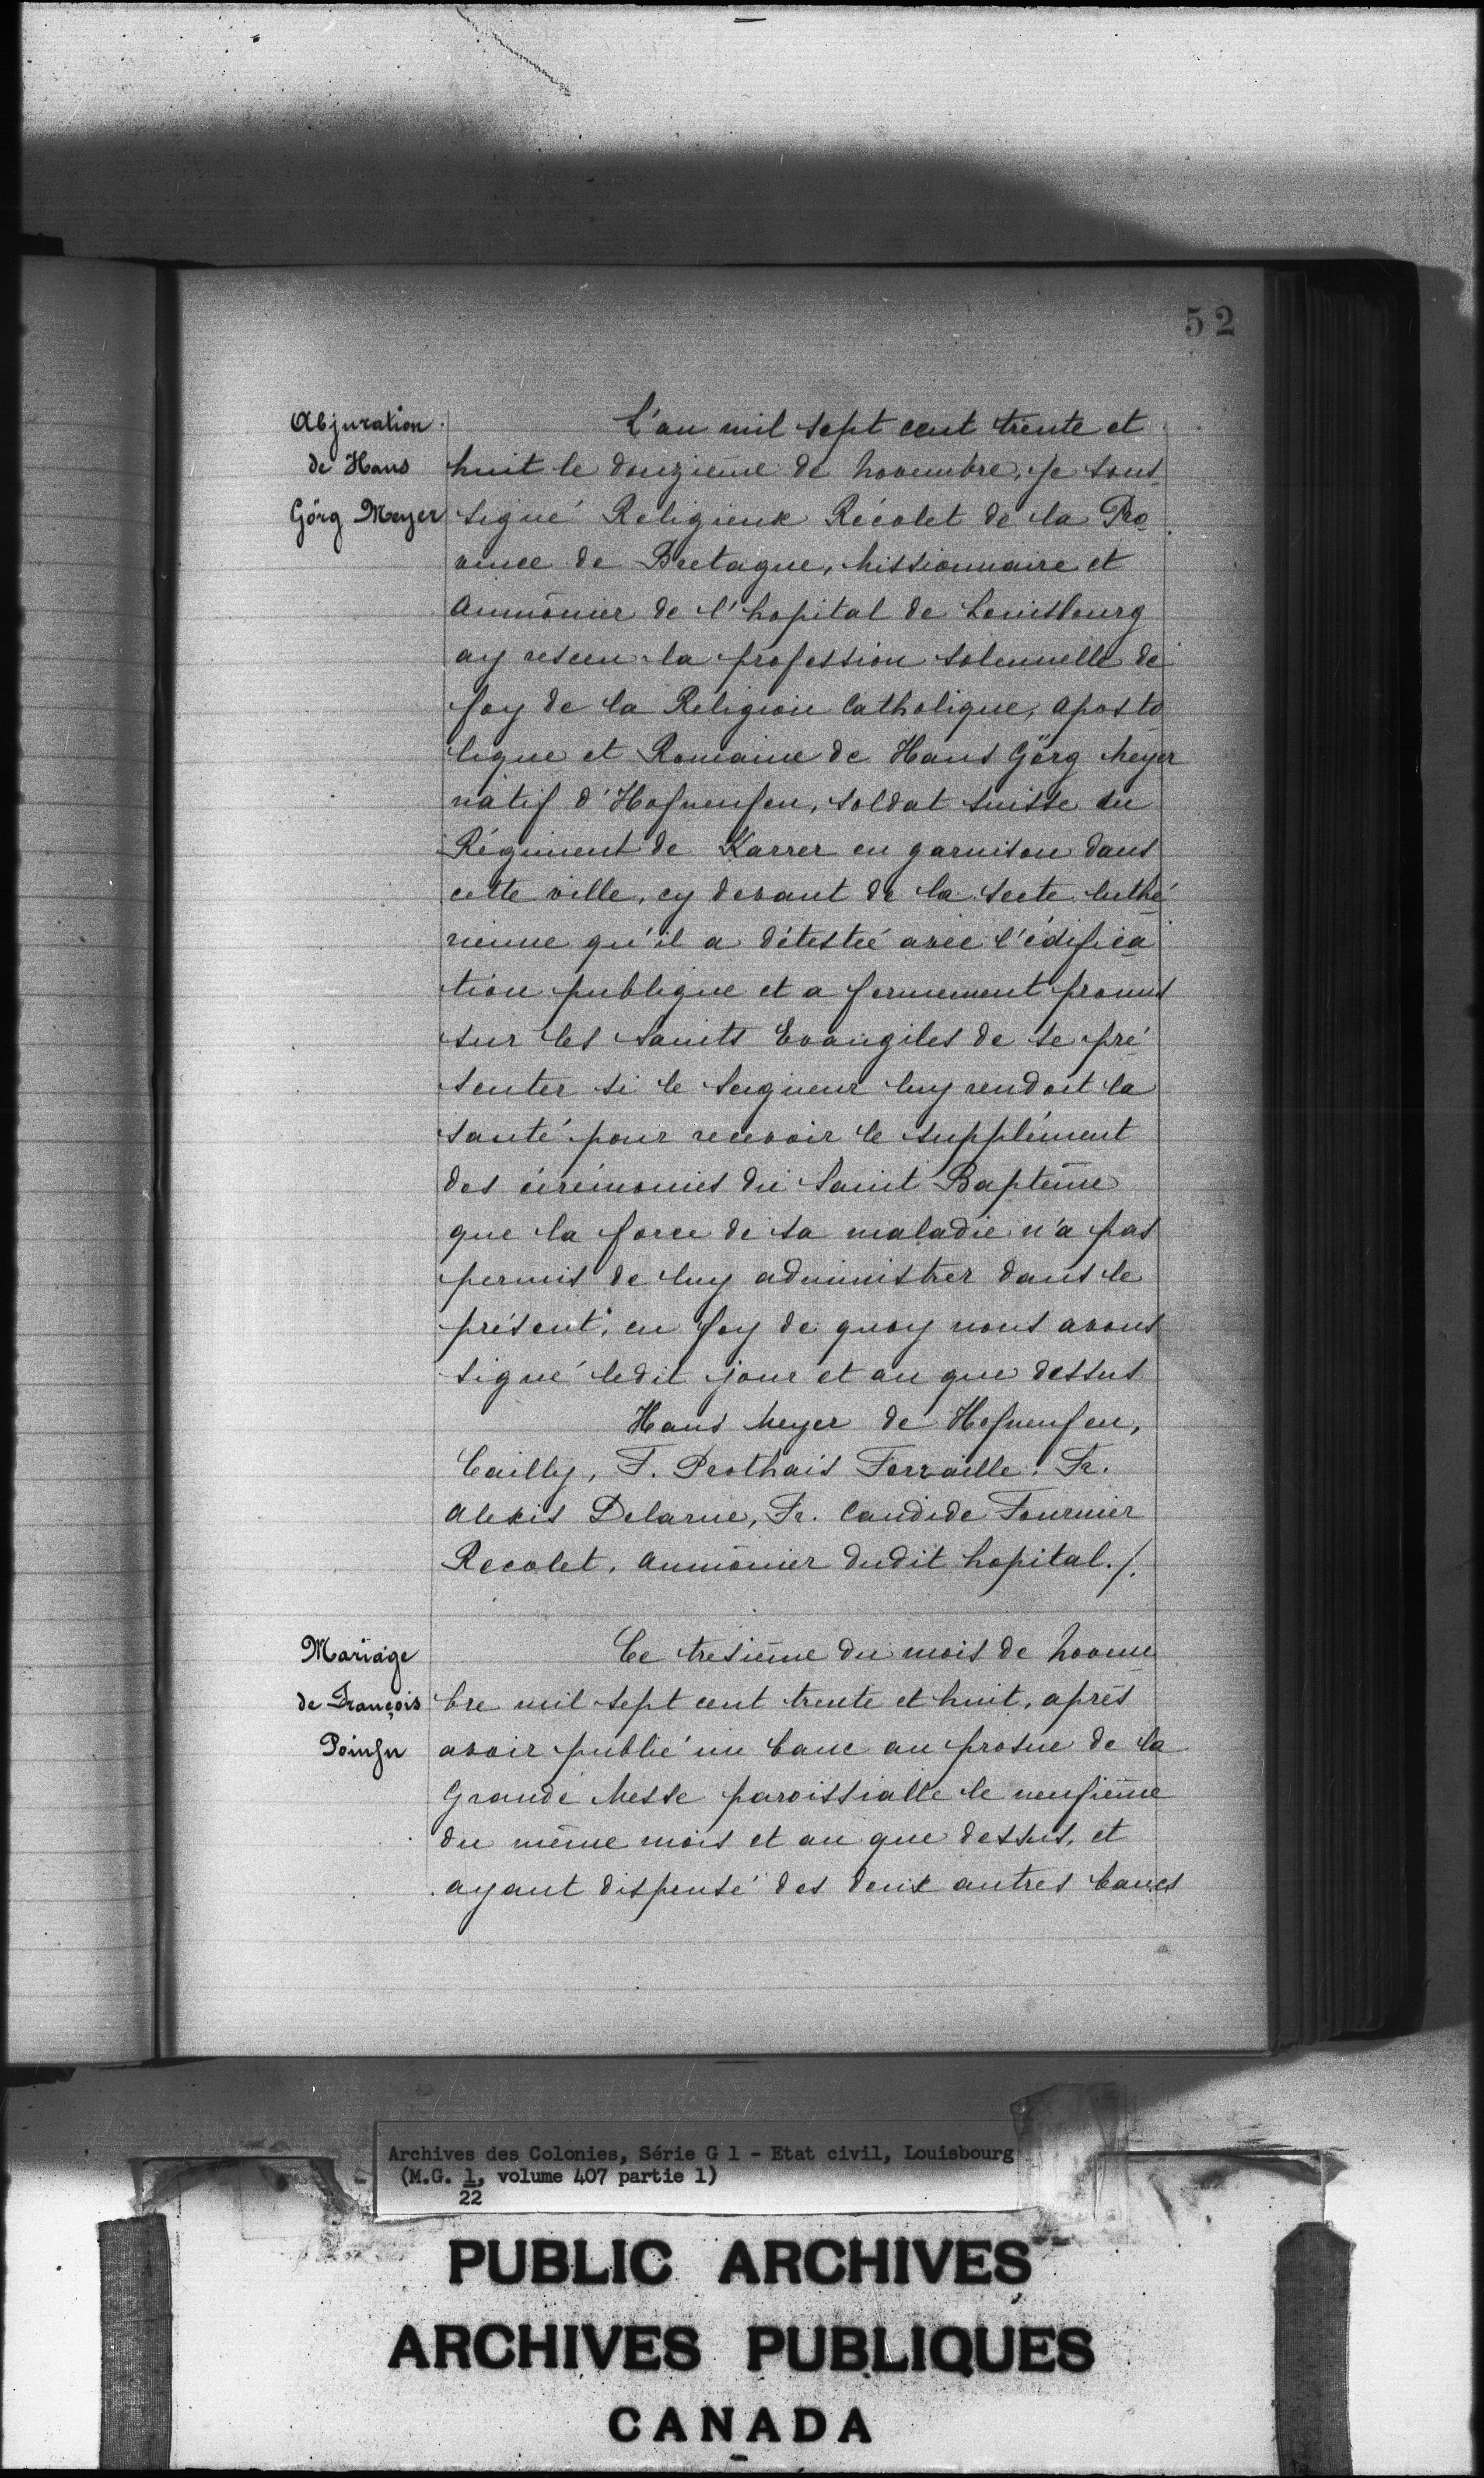 52
Abjuration
de Hans
Görg Meyer
L'an mil sept cent trente et
huit le douzième de Novembre, je sous
signé Religieux Récolet de la Pro
vince de Bretagne, Missionnaire et
Aumônier de l'hopital de Louisbourg
ay resceu la profession solennelle de
foy de la Religion Catholique, Aposto
lique et Romaine de Hans Görg Meyer
natif d'Hofnenfen, soldat suisse du
Régiment de Karrer en garnison dans
cette ville, cy devant de la secte luthé
rienne qu'il a détesteé avec l'édifica
tion publique et a fermement promis
sur les Saints Evangiles de se pré
senter si le Seigneur luy rendoit la
santé pour recevoir le supplément
des cérémonies du Saint Baptême
que la force de sa maladie n'a pas
permis de luy administrer dans le
présent; en foy de quoy nous avons
signé ledit jour et an que dessus
Hans Meyer de Hofnenfen,
Cailly, F. Prothais Ferraille. Fr.
Alexis Delarue, Fr. Candide Fournier
Recolet, Aumônier dudit hopital./.
Mariage
de François
Ce tresième du mois de Novem
bre mil sept cent trente et huit, après
avoir publié un banc au prosne de la
Grande Messe paroissialle le neufième
du même mois et an que dessus, et
ayant dispensé des deux autres bancs
Archives des Colonies, Série G 1 - Etat civil, Louisbourg
(M.G. 1, volume 407 partie 1)
22
PUBLIC ARCHIVES
ARCHIVES PUBLIQUES
CANADA